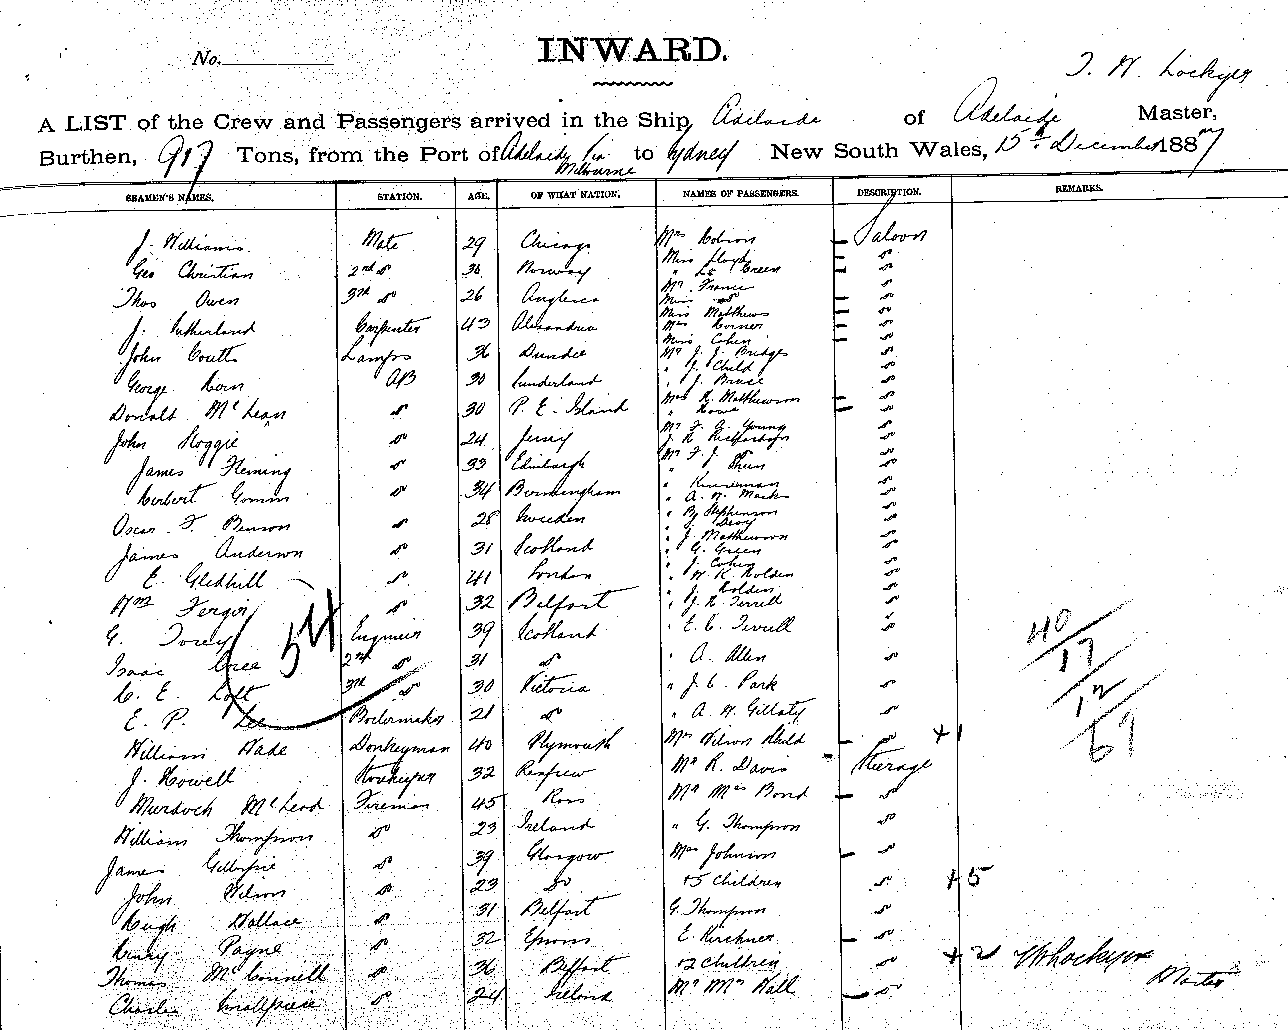 No.
INWARD.
T. W. Lockyer
A LIST of the Crew and Passengers arrived in the Ship Adelaide of Adelaide Master,
Burthen, 917 Tons, from the Port of Adelaide via Melbourne to Sydney New South Wales, 15th December 1887
SEAMEN'S NAMES. STATION. AGE. OF WHAT NATION. NAMES OF PASSENGERS. DESCRIPTION. REMARKS.
J. Williams Mate 29 Chicago
Geo Christian 2nd do 36 Norway
Thos Owen 3rd do 26 Anglesea
J. Sutherland Carpenter 43 Alexandria
John Coutts Lamps 36 Dundee
George Horn AB 30 Sunderland
Donald McLean do 30 P. E. Island
John Hoggie do 24 Jersey
James Fleming do 33 Edinburgh
Herbert do 34 Birmingham
Oscar F. Benson do 28 Sweden
James Anderson do 31 Scotland
E. Gledhill do 41 London
Wm do 32 Belfast
G. Torey Engineer 39 Scotland
Isaac Cree 2nd do 31 do
C. E. Loft 3rd do 30 Victoria
E. P. Lee Boilermaker 21 do
William Wade Donkeyman 40 Plymouth
J. Howell Storekeeper 32 Renfrew
Murdoch McLeod Fireman 45 Ross
William Thompson do 23 Ireland
James Gillespie do 39 Glasgow
John Wilson do 23 do
Hugh Wallace do 31 Belfast
Henry Payne do 32 Epsom
Thomas McConnell do 36 Belfast
Charles Smallpiece do 24 Ireland
54
Mrs Hobson Saloon
Miss Lloyd do
" Green do
Mr France
Miss do do
Miss Matthews do
Mrs Horner do
Miss Cohen do
Mr J. J. Bridges do
" J. Child do
" J. Bruce do
Mrs R. Matthewson do
" Howe do
Mr F. G. Young do
J. R.
Mr F. J. do
" Shein do
" Kinneman do
" A. W. Marks do
" By Stephenson do
" J. Davy do
" J. Matthewson do
" G. Green do
" J. Cohen do
" W. K. Holden do
" J. Holden do
" J. R. Terrell do
" E. C. Terrell do
" A. Allen do
" J. C. Park do
" A. W. Gillaty do
Mrs Wilson Child do +1
Mr R. Davis Steerage
Mr Mrs Bond do
" G. Thompson do
Mrs Johnson do
+5 Children do +5
G. Thompson do
E. Kirchner do
+2 Children do +2
Mr Mrs Hall do
40
17
12
69
TW Lockyer
Master